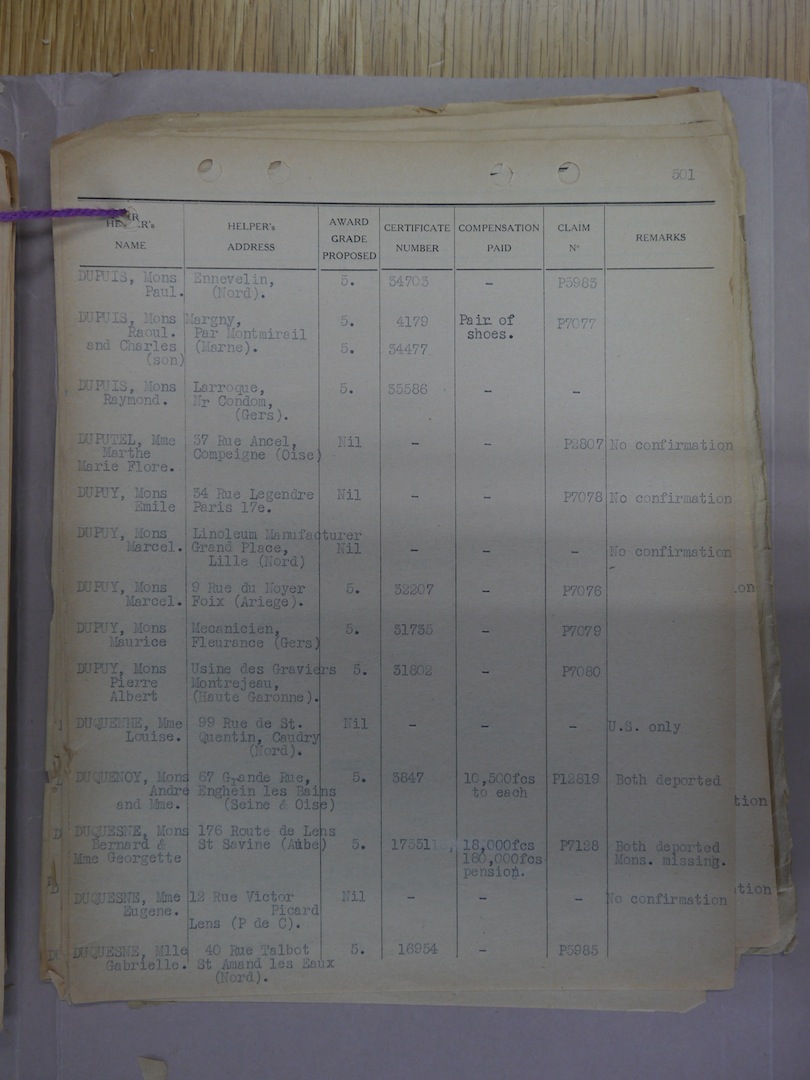 501
HELPER's NAME | HELPER's ADDRESS | AWARD GRADE PROPOSED | CERTIFICATE NUMBER | COMPENSATION PAID | CLAIM N° | REMARKS
DUPUIS, Mons Ennevelin, 5. 34703 - P5983
Paul. (Nord).
DUPUIS, Mons Margny, 5. 4179 Pair of P7077
Raoul. Par Montmirail shoes.
and Charles (Marne). 5. 34477
(son)
DUPUIS, Mons Larroque, 5. 35586 - -
Raymond. Nr Condom,
(Gers).
DUPUTEL, Mme 37 Rue Ancel, Nil - - P2807 No confirmation
Marthe Compeigne (Oise)
Marie Flore.
DUPUY, Mons 34 Rue Legendre Nil - - P7078 No confirmation
Emile Paris 17e.
DUPUY, Mons Linoleum Manufacturer
Marcel. Grand Place, Nil - - - No confirmation
Lille (Nord)
DUPUY, Mons 9 Rue du Noyer 5. 32207 - P7076
Marcel. Foix (Ariege).
DUPUY, Mons Mecanicien, 5. 31735 - P7079
Maurice Fleurance (Gers)
DUPUY, Mons Usine des Graviers 5. 31802 - P7080
Pierre Montrejeau,
Albert (Haute Garonne).
DUQUENNE, Mme 99 Rue de St. Nil - - - U.S. only
Louise. Quentin, Caudry
(Nord).
DUQUENOY, Mons 67 Grande Rue, 5. 3847 10,500fcs P12819 Both deported
Andre Enghein les Bains to each
and Mme. (Seine & Oise)
DUQUESNE, Mons 176 Route de Lens
Bernard & St Savine (Aube) 5. 17551 18,000fcs P7128 Both deported
Mme Georgette 180,000fcs Mons. missing.
pension.
DUQUESNE, Mme 12 Rue Victor Nil - - - No confirmation
Eugene. Picard
Lens (P de C).
DUQUESNE, Mlle 40 Rue Talbot 5. 16954 - P5985
Gabrielle. St Amand les Eaux
(Nord).